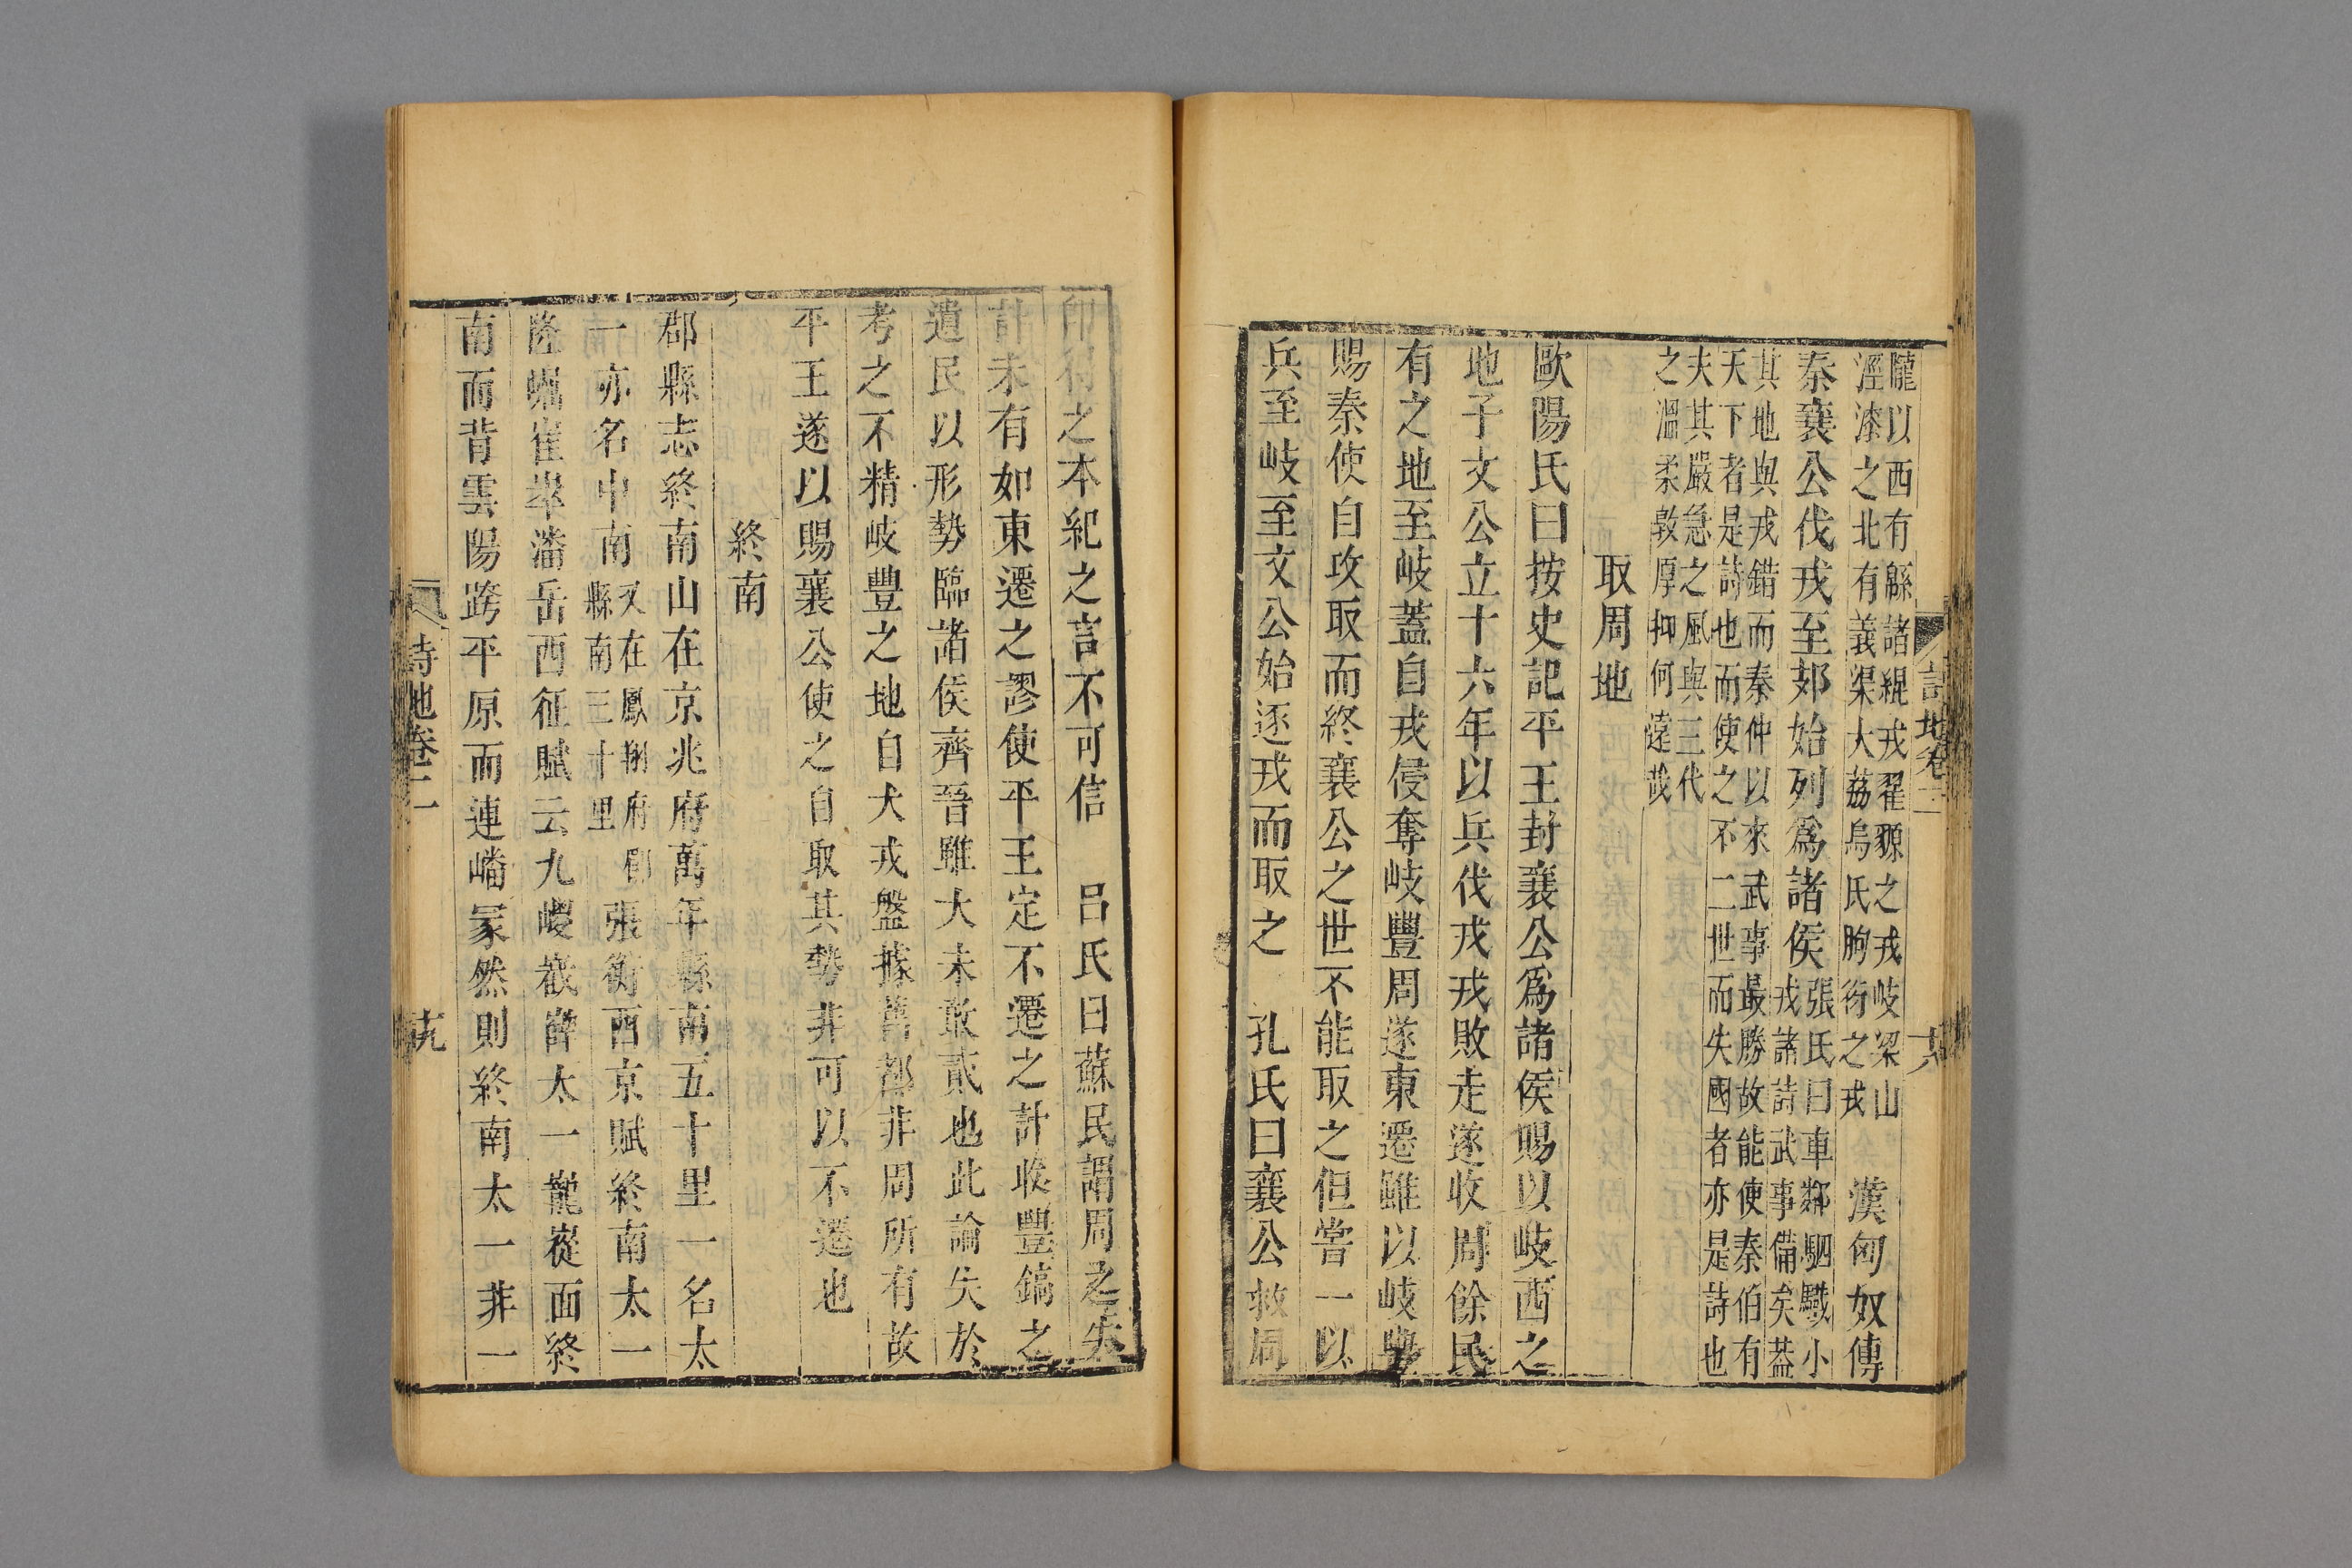 隴以西有緜諸緄戎翟豲之戎岐梁山
涇漆之北有義渠大荔烏氏朐衍之戎　漢匈奴傳
秦襄公伐戎至郊始列爲諸侯張氏曰車鄰駟驖小
戎諸詩武事備矣蓋
其地與戎錯而秦仲以來武事最勝故能使秦伯有
天下者是詩也而使之不二世而失國者亦是詩也
夫其嚴急之風與三代
之溫柔敦厚抑何遠哉
取周地
歐陽氏曰按史記平王封襄公爲諸侯賜以岐西之
地子文公立十六年以兵伐戎戎敗走遂收周餘民
有之地至岐蓋自戎侵奪岐豐周遂東遷雖以岐豐
賜秦使自攻取而終襄公之世不能取之但嘗一以
兵至岐至文公始逐戎而取之　孔氏曰襄公救周
詩地卷二　十八
卽得之本紀之言不可信　呂氏曰蘇民謂周之失
計未有如東遷之謬使平王定不遷之計收豐鎬之
遺民以形勢臨諸侯齊晉雖大未敢貳也此論失於
考之不精岐豐之地自犬戎盤據舊都非周所有故
平王遂以賜襄公使之自取其勢非可以不遷也
終南
郡縣志終南山在京兆府萬年縣南五十里一名太
一亦名中南又在鳳翔府郿
縣南三十里張衡西京賦終南太一
隆崛崔崒潘岳西征賦云九嵕嶻嶭太一巃嵸面終
南而背雲陽跨平原而連嶓冢然則終南太一非一
詩地卷二　十九